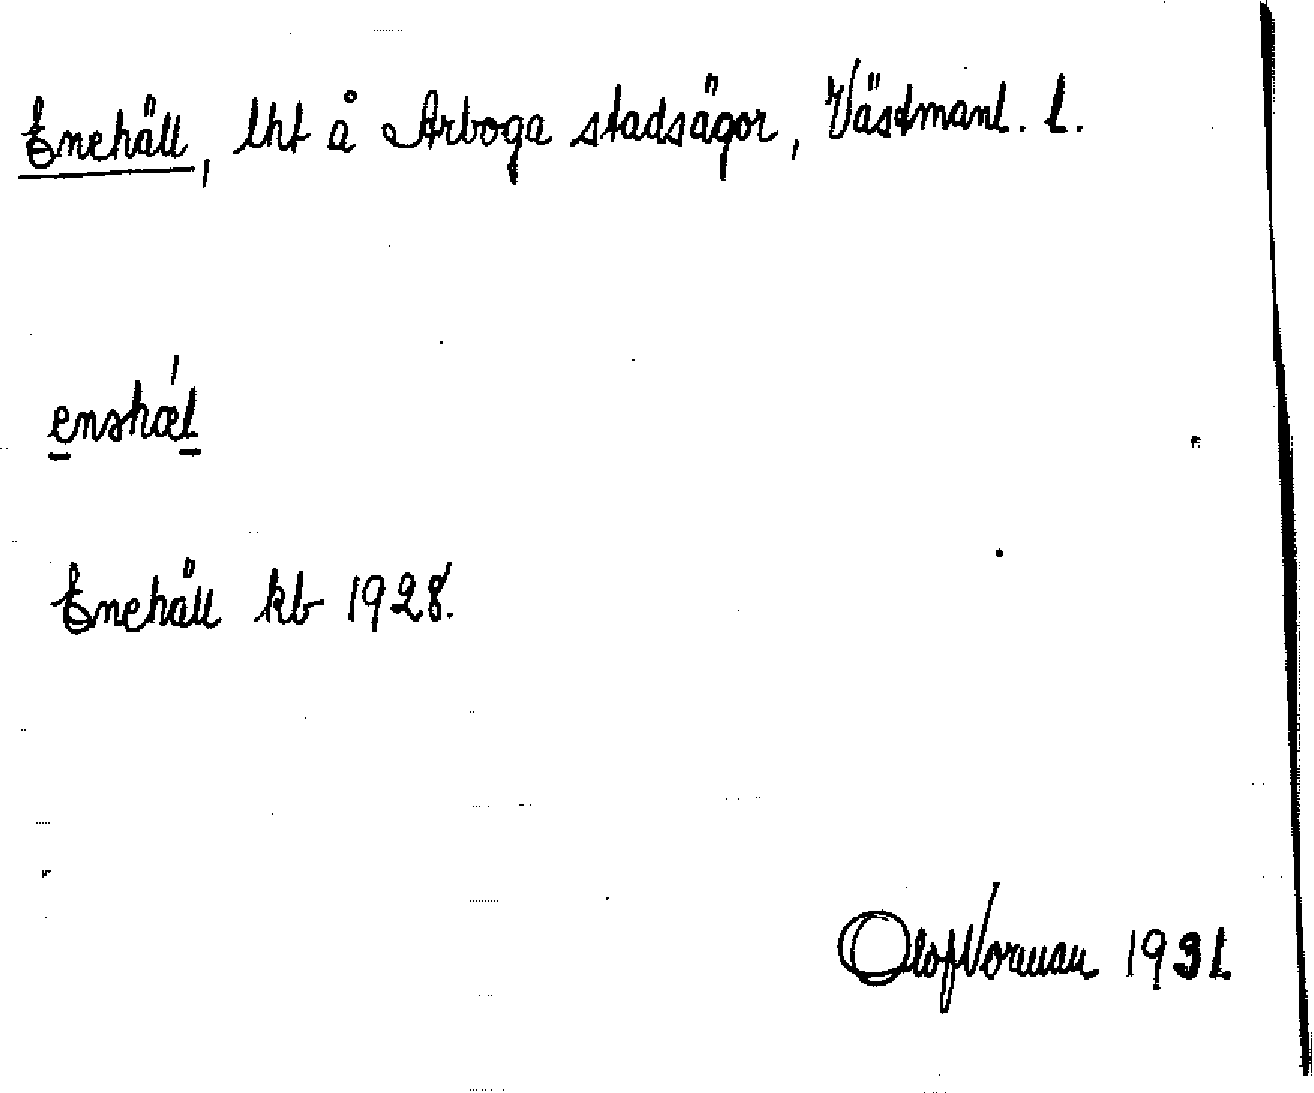 Enehäll, lht å Arboga stadsägor, Västmanl. l.
enəhæ̀l
Enehäll kb 1928.
Olof Norman 1931.